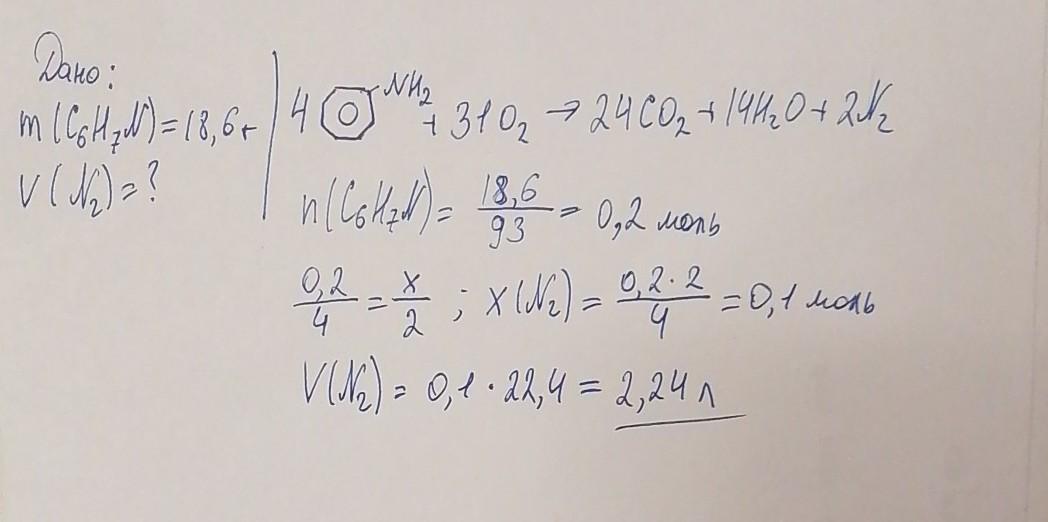 Дано:
m(C₆H₇N)=18,6г
V(N₂)=?
4 NH₂ + 31O₂ → 24CO₂+14H₂O+2N₂
n(C₆H₇N)= 18,6/93 = 0,2 моль
0,2/4 = x/2 ; x(N₂)= 0,2·2/4 =0,1 моль
V(N₂)= 0,1·22,4 = 2,24 л